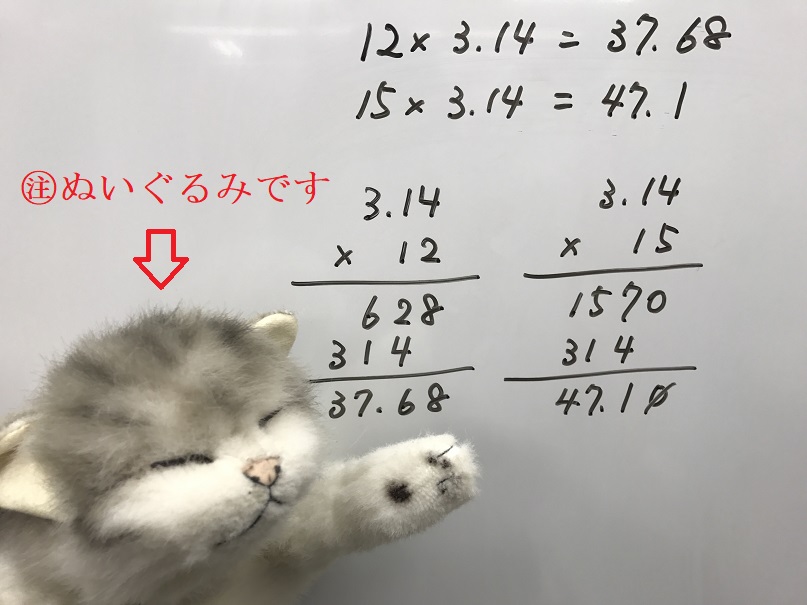 12× 3.14 = 37.68
15× 3.14 = 47.1
㊟ぬいぐるみです
3.14
× 12
628
314
37.68
3.14
× 15
1570
314
47.10